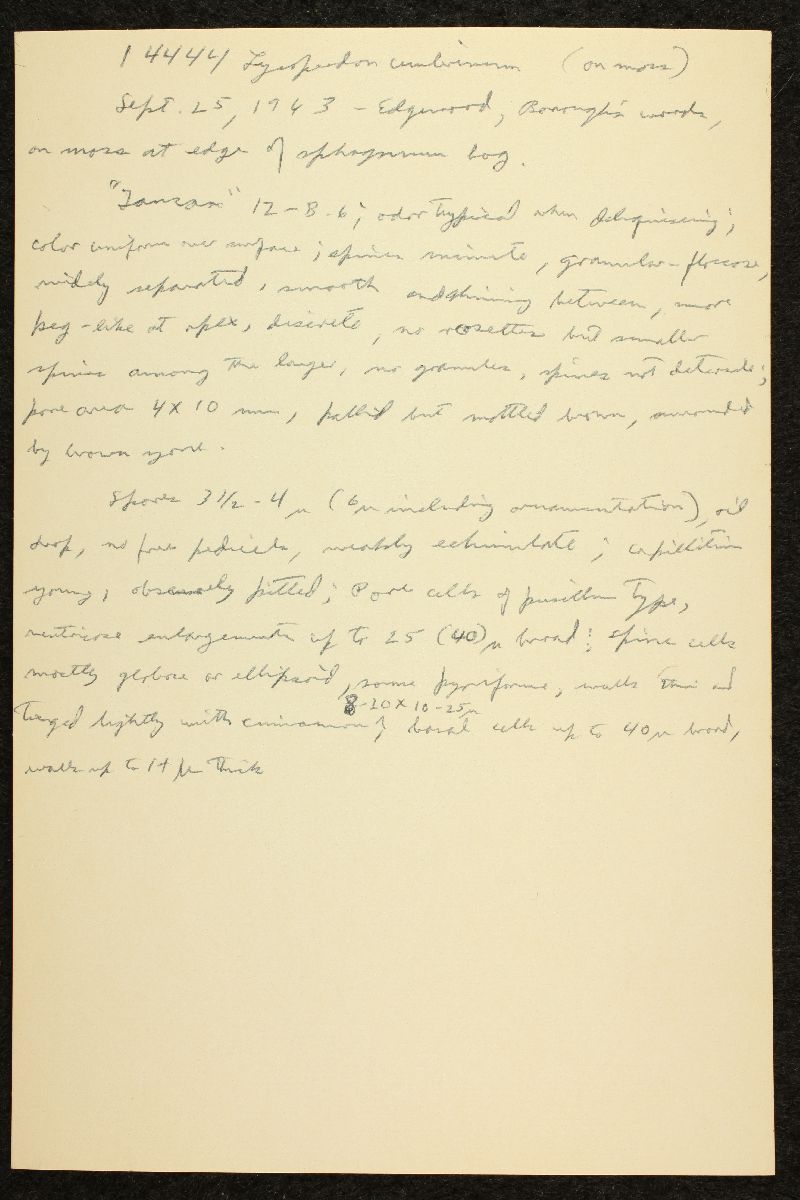 14444 Lycoperdon umbrinum (on moss)
Sept. 25, 1943 - Edgewood, Borough's woods,
on moss at edge of sphagnum bog.
12-8-6; odor typical when deliquescing;
color uniform over surface; spines minute, granular-floccose,
widely separated, smooth and shining between, more
peg-like at apex, discrete, no rosettes but smaller
spines among the larger, no granules, spines not detersile;
pore area 4 x 10 mm, pallid but mottled brown, surrounded
by brown zone.
Spores 3 1/2 - 4 μ (6 μ including ornamentation), oil
drop, no free pedicels, weakly echinulate; capillitium
young, obscurely pitted; Pore cells of pusillum type,
ventricose enlargements up to 25 (40) μ broad; spine cells
mostly globose or ellipsoid, some pyriforme, walls thin and
8-20 x 10-25 μ
tinged lightly with cinnamon; basal cells up to 40 μ broad,
walls up to 1+ μ thick